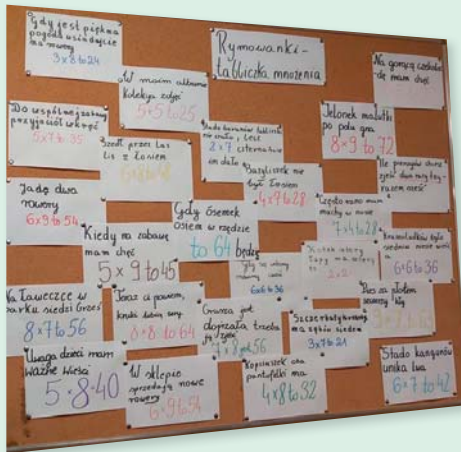 Gdy jest piękna
pogoda wsiadajcie
na rowery
3x8to24
Rymowanki-
tabliczka mnożenia
Na gorącą czekola-
dę mam chęć
W moim albumie
kolekcja zdjęć
5•5to25
Do wspólnej zabawy
przyjaciół wkręć
5x7 to 35
Szedł przez las
lis z łosiem
6x8to48
Stado baranów
8x7
Jelonek malutki
po polu gna
8×9 to 72
Bazyliszek nie
był łosiem
4x7to28
Nie
Jadę dwa
rowery
6x9to54
Gdy ósemek
osiem w rzędzie
to 64 będzie
Często rano mam
muchy w nosie
7x4to28
Kiedy na zabawę
mam chęć
5×9to45
6x6to36
Kotek
łapy ma
2x2
6•6to36
Na ławeczce w
parku siedzi Grześ
8x7to56
Teraz ci powiem,
kruki lubią sery
8x8 to 64
Gruszka jest
dojrzała trzeba
ją zjeść
7x8 to 56
Szczerbaty
ma zębów siedem
3x7to21
Pies za płotem
Uwaga dzieci mam
ważne wieści
5•8-40
W sklepie
sprzedają nowe
rowery
6×9to54
Kopciuszek ona
pantofelki ma
4x8to32
Stado kangurów
unika lwa
6×7 to 42